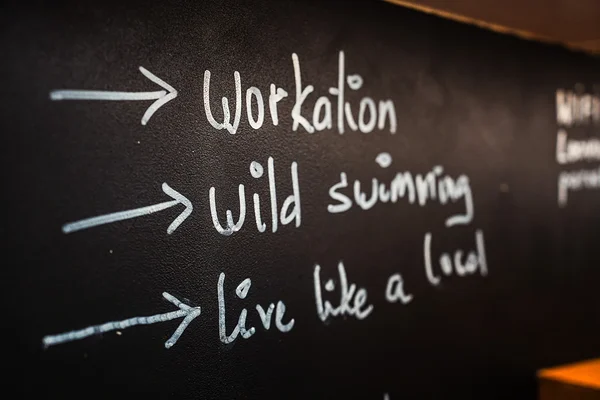 → Workation
→ wild swimming
→ Live like a local
WiFi